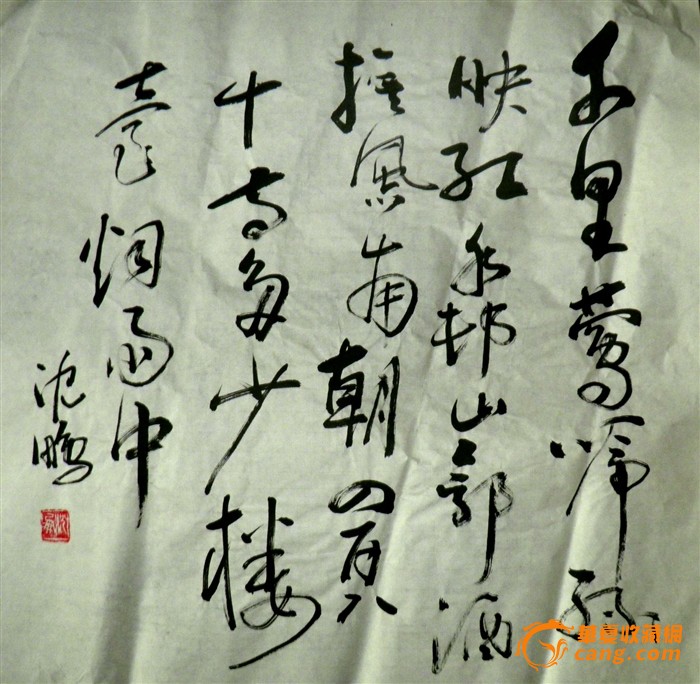 千里鶯啼绿
映红水邨山郭酒
旗風南朝四百八
十寺多少楼
臺烟雨中
沈鹏
華夏收藏網
cang.com